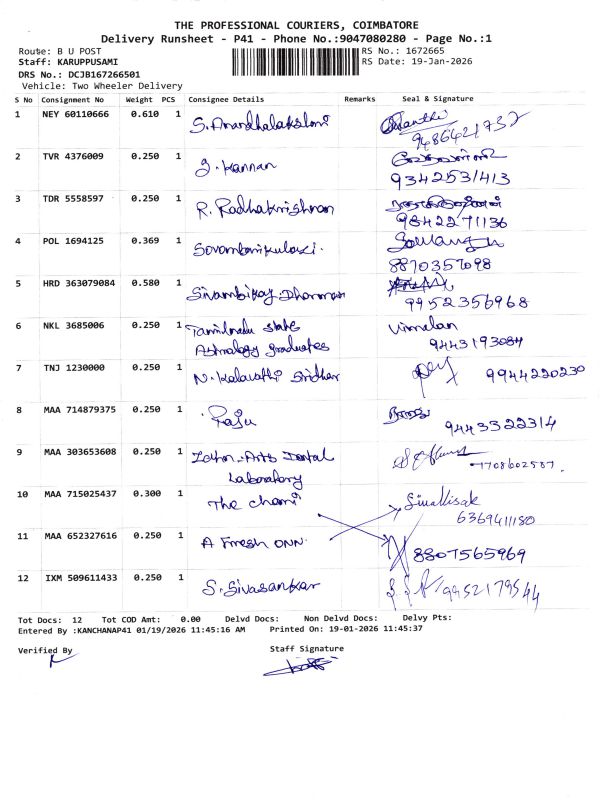 THE PROFESSIONAL COURIERS, COIMBATORE
Delivery Runsheet - P41 - Phone No.:9047080280 - Page No.:1
Route: B U POST
RS No.: 1672665
Staff: KARUPPUSAMI
RS Date: 19-Jan-2026
DRS No.: DCJB167266501
Vehicle: Two Wheeler Delivery
S No Consignment No Weight PCS Consignee Details Remarks Seal & Signature
1 NEY 60110666 0.610 1 S. Anandhalakshmi
9486421732
2 TVR 4376009 0.250 1 J. Kannan
9342531413
3 TDR 5558597 0.250 1 R. Radhakrishnan
9842271136
4 POL 1694125 0.369 1
8870357098
5 HRD 363079084 0.580 1
9952356968
6 NKL 3685006 0.250 1 Tamilnadu State Vimalan
Astrology graduates 9443193084
7 TNJ 1230000 0.250 1 N. Kalavathi Sridhar 9944220230
8 MAA 714879375 0.250 1 Raju
9443322314
9 MAA 303653608 0.250 1 Arts Dental
Laboratory 7708602587.
10 MAA 715025437 0.300 1 The
6369411180
11 MAA 652327616 0.250 1 A Fresh
8807565969
12 IXM 509611433 0.250 1 S. Sivasankar 9952179544
Tot Docs: 12 Tot COD Amt: 0.00 Delvd Docs: Non Delvd Docs: Delvy Pts:
Entered By :KANCHANAP41 01/19/2026 11:45:16 AM Printed On: 19-01-2026 11:45:37
Verified By
Staff Signature